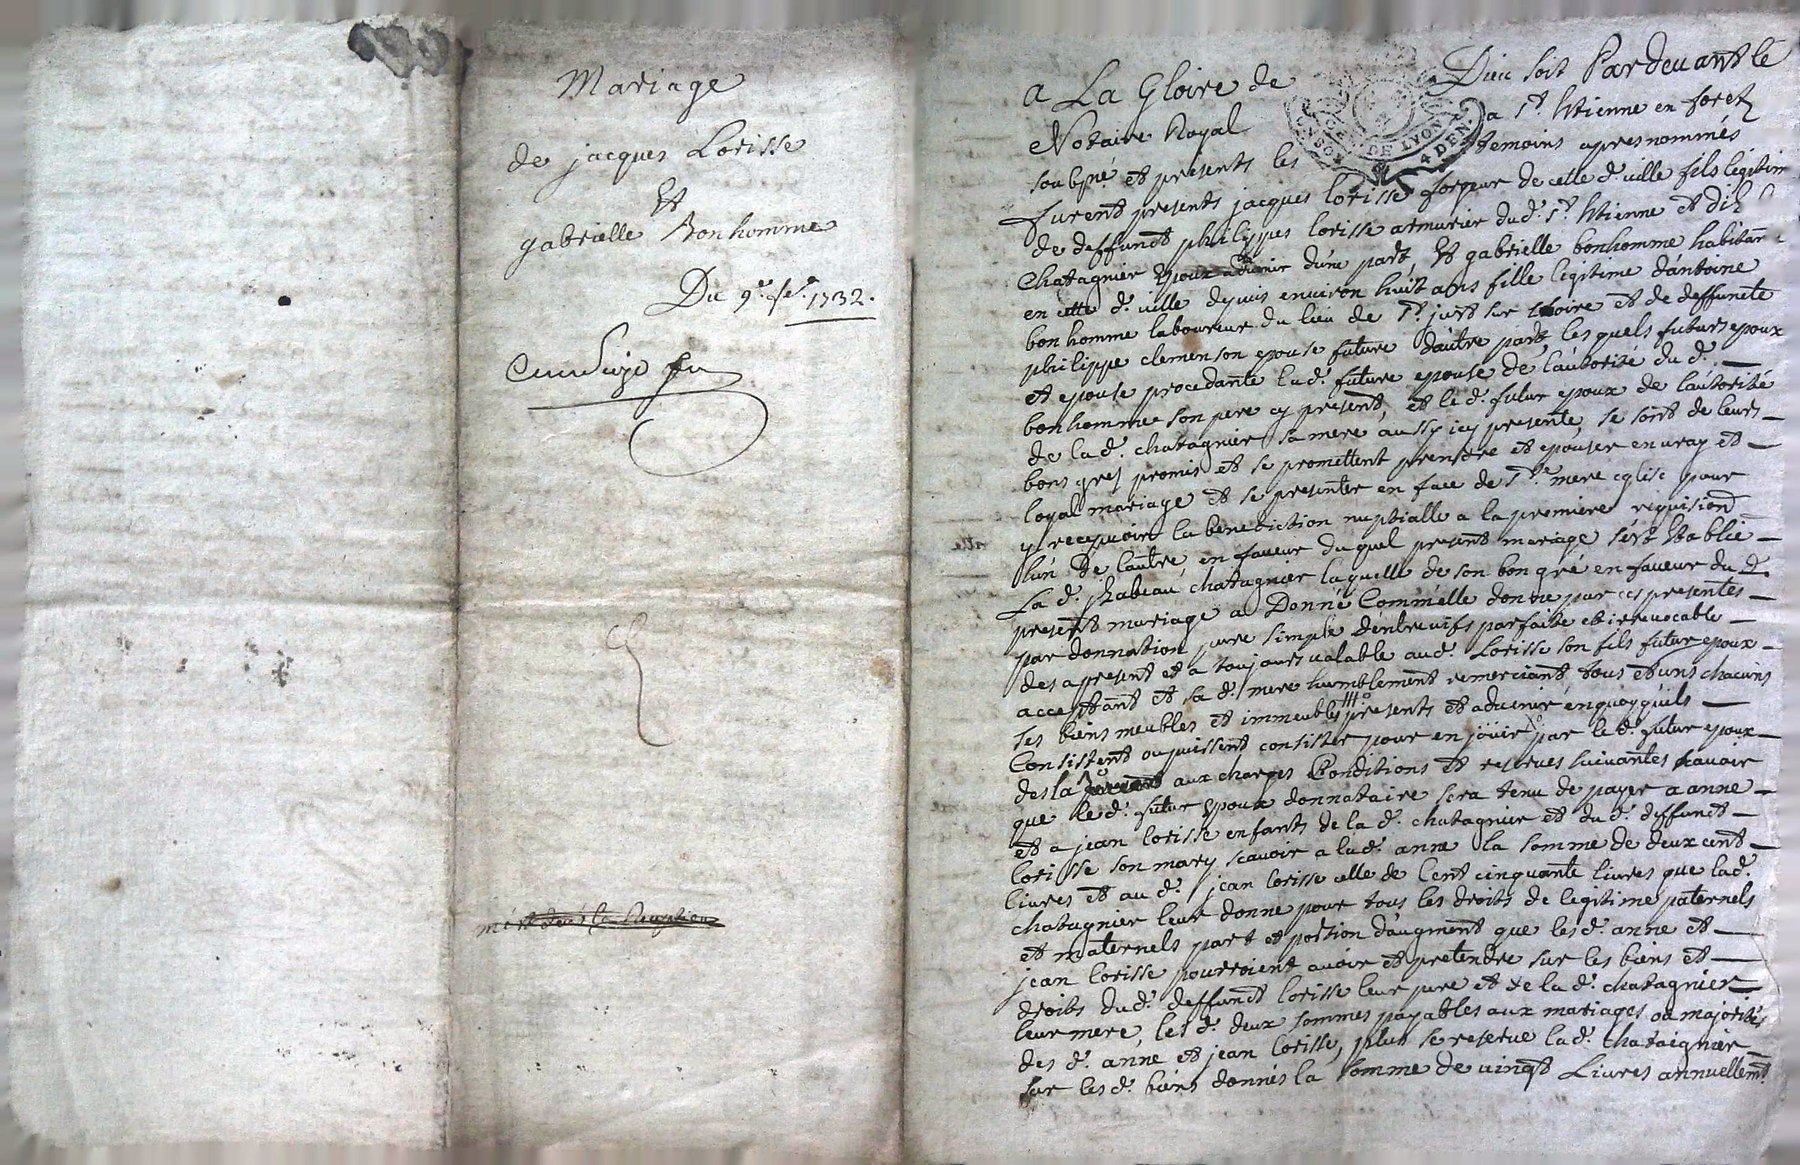 Mariage
de jacques Lorisse
Et
gabrielle Bonhomme
Du 9.e 1732.
a La Gloire de Dieu soit Pardevant le
Notaire Royal a St. Etienne en forez
soubné. et presents les temoins apres nommés
GN. DE LYON
4 DEN.
furent presents jacques Lorisse forgeur de cette d. ville fils legitim
de deffunct philippes lorisse armurier dud. St. Etienne et d
Chatagnier Epoux advenir d'une part, Et gabrielle bonhomme habitan
en cette d. ville depuis environ huit ans fille legitime d'antoine
bonhomme laboureur du lieu de St. just sur Loire et de deffuncte
philippe clemenson epouse future d'autre part, lesquels futurs epoux
et epouse procedante lad. future epouse de l'autorité du d.
bonhomme son pere cy present, et le d. futur epoux de l'autorité
de la d. chatagnier sa mere aussy icy presente, se sont de leurs
bons grez promis et se promettent prendre et epouser en vray et
loyal mariage et se presenter en face de Ste. mere eglise pour
y recepvoir la benediction nuptialle a la premiere requisiond
l'un de l'autre, en faveur duquel present mariage s'est Etablie
La d. chatagnier laquelle de son bon gré en faveur du d.
present mariage a Donné Comm'elle donne par ces presentes
par donnation pure simple d'entrevifs parfaite et irrevocable
des apresent et a toujours valable aud. Lorisse son fils futur epoux
acceptant et sa d. mere humblement remerciant, tous et uns chacuns
ses biens meubles et immeubles presents et advenir en quoy qu'ils
Consistent ou puissent consister pour en joüir par le d. futur epoux
des la aux charges Conditions et reserves suivantes scavoir
que le d. futur Epoux donnataire sera tenu de payer a anne
et a jean lorisse enfants de la d. chatagnier et du d. deffunct
lorisse son mary scavoir a lad. anne la somme de deux cent
livres et au d. jean lorisse celle de Cent cinquante livres que lad.
chatagnier leur donne pour tous les droits de legitime paternels
et maternels part et portion d'augment que les d. anne et
jean lorisse pourroient avoir et pretendre sur les biens et
droits dud. deffunct lorisse leur pere et de la d. chatagnier
leur mere, les d. deux sommes payables aux mariages ou majorités
des d. anne et jean lorisse, plus se reserve lad. chataignier
sur les d. biens donnés la somme de vingt Livres annuellemt.